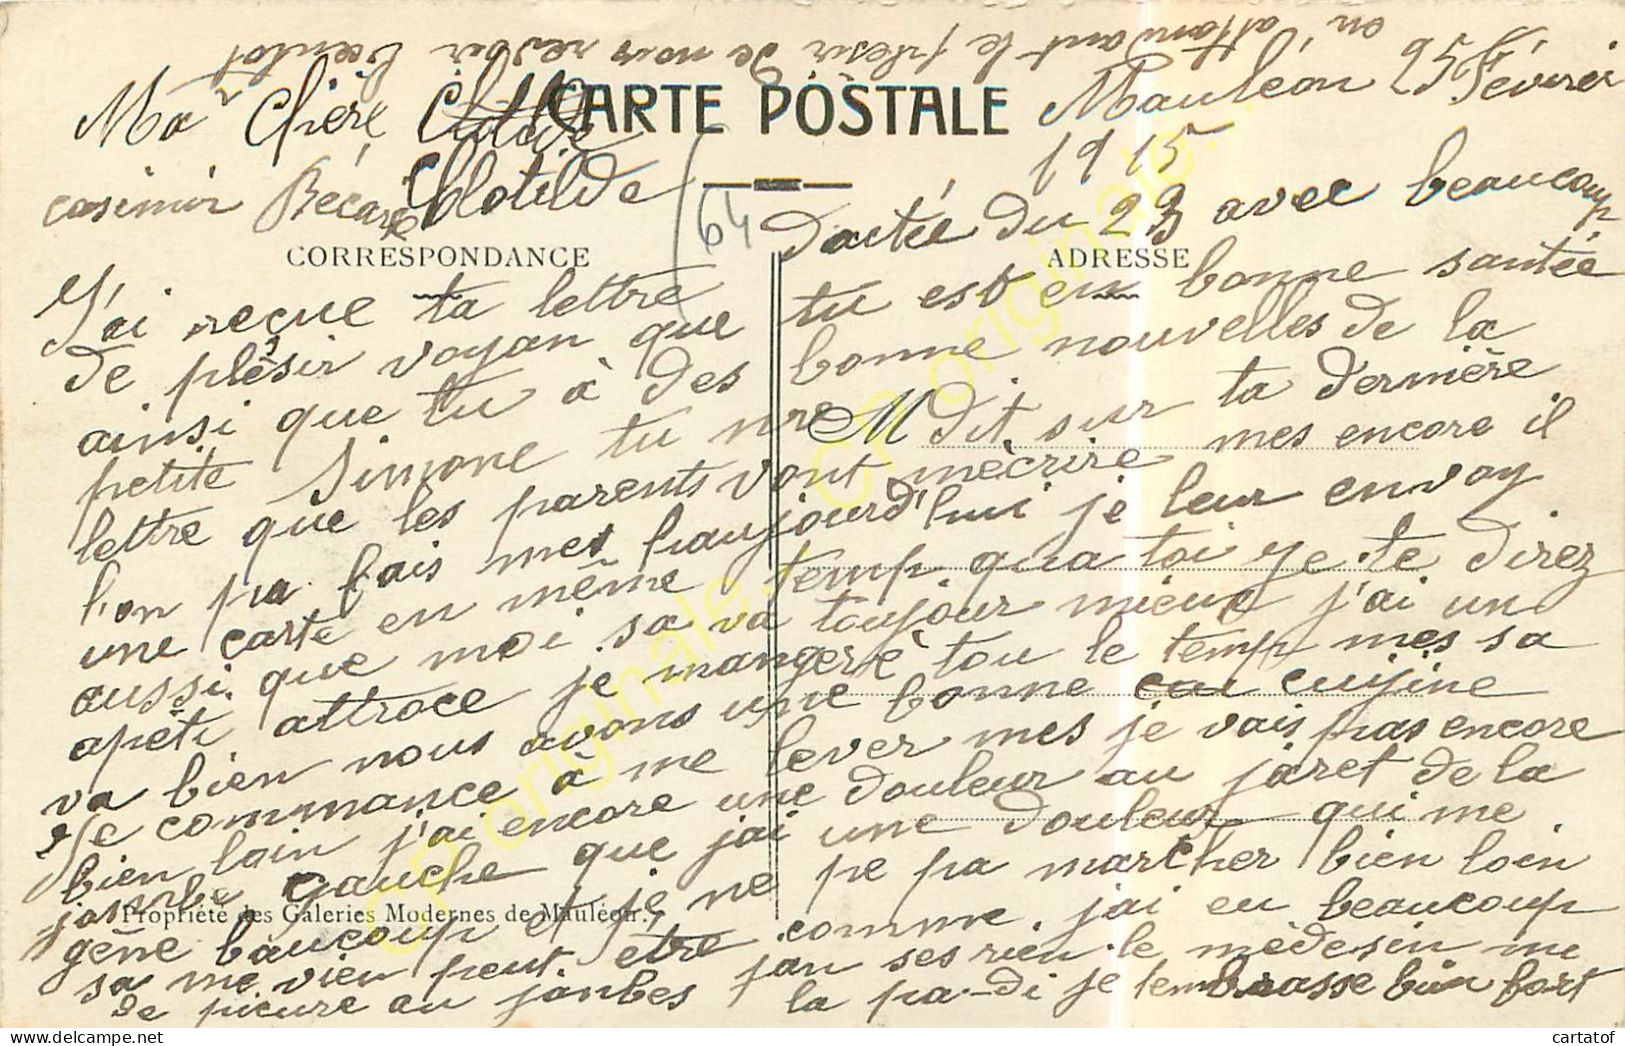 en attendant le plésir de nous revoir bientot
Mauléon 25 Février
1915
Ma Chère
CARTE POSTALE
casimir Récard Clotilde
64
CORRESPONDANCE
ADRESSE
J'ai reçue ta lettre daitée du 23 avec beaucoup
de plésir voyan que tu est en bonne santée
ainsi que tu à des bonne nouvelles de la
petite Simone tu me dit sur ta dernière
lettre que les parents vont mécrire mes encore il
l'on pa fais mes aujourd'hui je leur envoy
une carte en même temp qua toi je te direz
aussi que moi sa va toujour mieux j'ai un
apéti attroce je mangerè tou le temp mes sa
va bien nous avons une bonne cuijine
Je commance à me lever mes je vais pas encore
bien loin j'ai encore une douleur au jaret de la
jambe gauche que jai une douleur qui me
Propriété des Galeries Modernes de Mauléon.
gêne baucoup et je ne pe pa marcher bien loin
sa me vien peut etre comme j'ai eu beaucoup
de picure au janbes jan ses rien le médesin me
la pa di je tembrasse bien fort
CP originales
cartatof